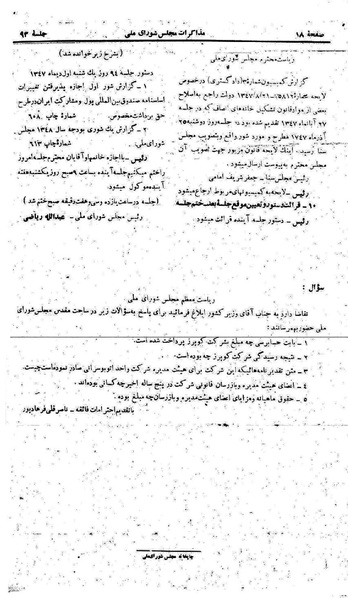 صفحهٔ ۱۸
مذاکرات مجلس شورای ملی
جلسهٔ ۹۳
ریاست محترم مجلس شورای ملی
گزارش کمیسیون شماره ۳ (دادگستری) درخصوص
لایحه شماره دولت راجع به اصلاح
بعضی از مواد قانون تشکیل خانه‌های انصاف که در جلسه
۲۷ آبانماه ۱۳۴۷ تقدیم شده بود در جلسه روز دوشنبه ۲۵
آذرماه ۱۳۴۷ مطرح و مورد شور واقع و بتصویب مجلس
سنا رسید. اینک لایحه قانونی مزبور جهت تصویب آن
مجلس محترم به پیوست ارسال میشود.
رئیس مجلس سنا - جعفر شریف امامی
رئیس - به کمیسیونهای مربوط ارجاع میشود
۱۰ - قرائت دستور و تعیین موقع جلسه بعد ـ ختم جلسه
رئیس - دستور جلسه آینده قرائت میشود
(بشرح زیر خوانده شد)
دستور جلسه ۹۴ روز یک شنبه اول دیماه ۱۳۴۷
۱ - گزارش شور اول اجازه پذیرفتن تغییرات
اساسنامه صندوق بین المللی پول و مشارکت ایران در طرح
حق برداشت مخصوص. شماره چاپ ۱۰۸
۲ - گزارش شوری بودجه سال ۱۳۴۸ مجلس
شورای ملی. شماره چاپ ۶۱۳
رئیس - با اجازه خانمها و آقایان محترم جلسه امروز
را ختم میکنیم جلسه آینده ساعت ۹ صبح روز یکشنبه هفته
آینده موکول میشود.
(جلسه در ساعت یازده و سی و هفت دقیقه صبح ختم شد)
رئیس مجلس شورای ملی - عبدالله ریاضی
سؤال:
ریاست معظم مجلس شورای ملی
تقاضا دارد به جناب آقای وزیر کشور ابلاغ فرمائید برای پاسخ به سؤالات زیر در ساحت مقدس مجلس شورای
ملی حضور بهم رسانند:
۱ - بابت حسابرسی چه مبلغ بشرکت کوپرز پرداخت شده است.
۲ - نتیجه رسیدگی شرکت کوپرز چه بوده است.
۳ - متن تقدیرنامه‌هائیکه این شرکت برای هیئت مدیره شرکت واحد اتوبوسرانی صادر نموده است چیست.
۴ - اعضای هیئت مدیره و بازرسان قانونی شرکت در پنج ساله اخیر چه کسانی بوده‌اند.
۵ - حقوق ماهیانه و مزایای اعضای هیئت مدیره و بازرسان چه مبلغ بوده.
با تقدیم احترامات فائقه - ناصرقلی فرهادپور
چاپخانه مجلس شورای ملی